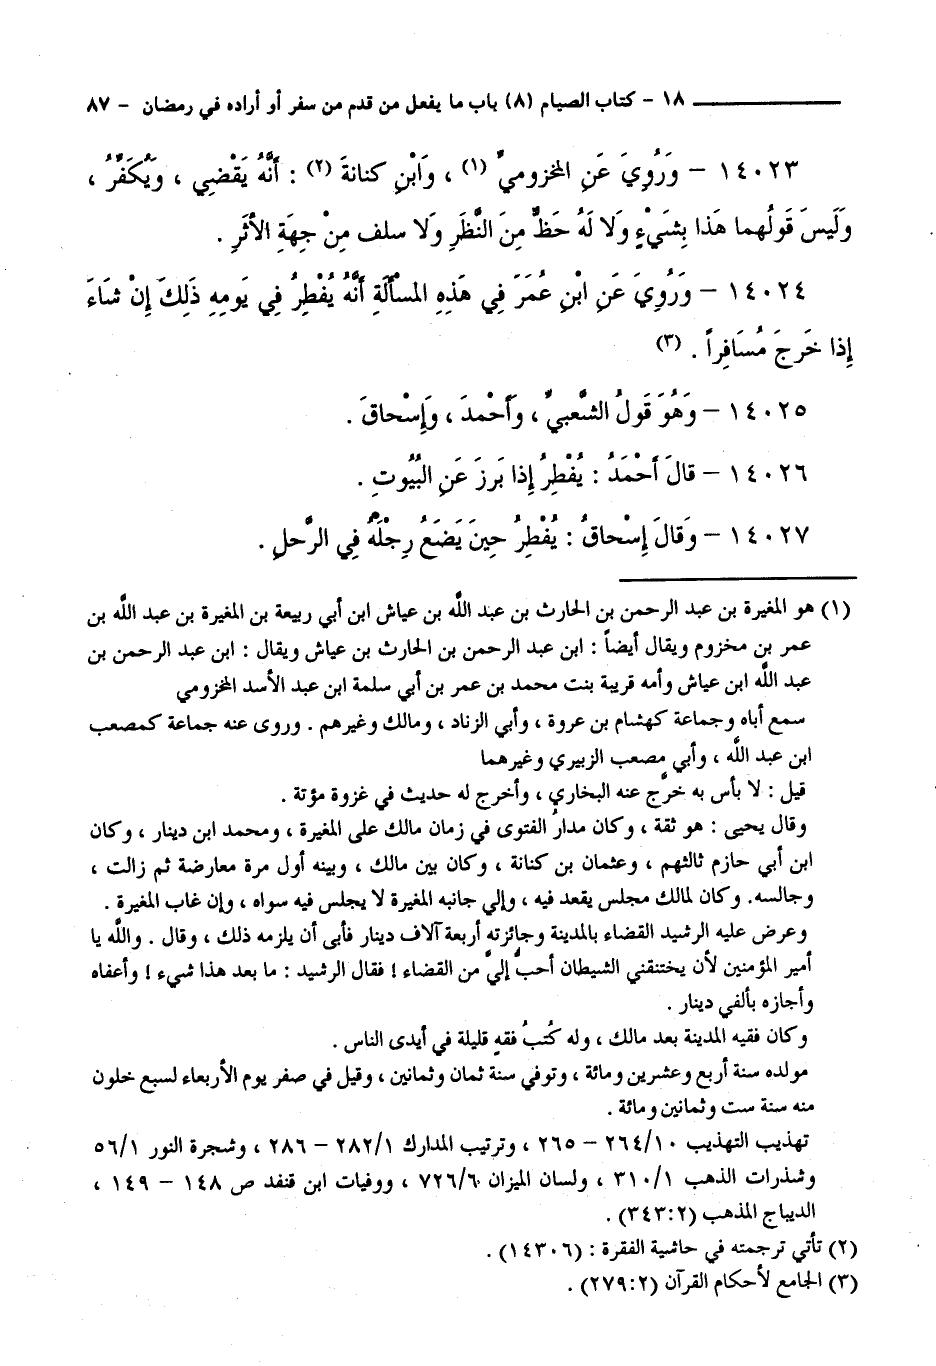 ١٨ - كتاب الصيام (٨) باب ما يفعل من قدم من سفر أو أراده في رمضان - ٨٧
١٤٠٢٣ - وَرُوِيَ عَنِ المخزوميِّ (١) ، وَابْنِ كنانةَ (٢) : أَنَّهُ يَقْضِي ، وَيُكَفِّرُ ،
وَلَيسَ قَولُهما هَذا بِشَيْءٍ وَلا لَهُ حَظٌّ مِنَ النَّظَرِ وَلا سلف مِنْ جِهَةِ الأثَرِ .
١٤٠٢٤ - وَرُوِيَ عَنِ ابْنِ عُمَرَ فِي هَذِهِ المسْألَةِ أَنَّهُ يُفْطِرُ فِي يَومِهِ ذَلِكَ إِنْ شَاءَ
إِذا خَرجَ مُسَافِراً . (٣)
١٤٠٢٥ - وَهُوَ قَولُ الشَّعبيِّ ، وَأَحْمدَ ، وَإِسْحاقَ .
١٤٠٢٦ - قالَ أَحْمَدُ : يُفْطِرُ إِذا بَرزَ عَنِ البُيُوتِ .
١٤٠٢٧ - وَقالَ إِسْحاقُ : يُفْطِرُ حِينَ يَضَعُ رِجْلَهُ فِي الرَّحلِ .
(١) هو المغيرة بن عبد الرحمن بن الحارث بن عبد اللَّه بن عياش ابن أبي ربيعة بن المغيرة بن عبد اللَّه بن
عمر بن مخزوم ويقال أيضاً : ابن عبد الرحمن بن الحارث بن عياش ويقال : ابن عبد الرحمن بن
عبد اللَّه ابن عياش وأمه قريبة بنت محمد بن عمر بن أبي سلمة ابن عبد الأسد المخزومي
سمع أباه وجماعة كهشام بن عروة ، وأبي الزناد ، ومالك وغيرهم . وروى عنه جماعة كمصعب
ابن عبد اللَّه ، وأبي مصعب الزبيري وغيرهما
قيل : لا بأس به خرَّج عنه البخاري ، وأخرج له حديث في غزوة مؤتة .
وقال يحيى : هو ثقة ، وكان مدارُ الفتوى في زمان مالك على المغيرة ، ومحمد ابن دينار ، وكان
ابن أبي حازم ثالثهم ، وعثمان بن كنانة ، وكان بين مالك ، وبينه أول مرة معارضة ثم زالت ،
وجالسه. وكان لمالك مجلس يقعد فيه ، وإلي جانبه المغيرة لا يجلس فيه سواه ، وإن غاب المغيرة .
وعرض عليه الرشيد القضاء بالمدينة وجائزته أربعة آلاف دينار فأبى أن يلزمه ذلك ، وقال . واللَّه يا
أمير المؤمنين لأن يختنقني الشيطان أحبُّ إليَّ من القضاء ! فقال الرشيد : ما بعد هذا شيء ! وأعفاه
وأجازه بألفي دينار .
وكان فقيه المدينة بعد مالك ، وله كُتبُ فقهٍ قليلة في أيدى الناس .
مولده سنة أربع وعشرين ومائة ، وتوفي سنة ثمان وثمانين ، وقيل في صفر يوم الأربعاء لسبع خلون
منه سنة ست وثمانين ومائة .
تهذيب التهذيب ٢٦٤/١٠ - ٢٦٥ ، وترتيب المدارك ٢٨٢/١ - ٢٨٦ ، وشجرة النور ٥٦/١
وشذرات الذهب ٣١٠/١ ، ولسان الميزان ٧٢٦/٦ ، ووفيات ابن قنفد ص ١٤٨ - ١٤٩ ،
الديباج المذهب (٣٤٣:٢) .
(٢) تأتي ترجمته في حاشية الفقرة : (١٤٣٠٦) .
(٣) الجامع لأحكام القرآن (٢٧٩:٢) .